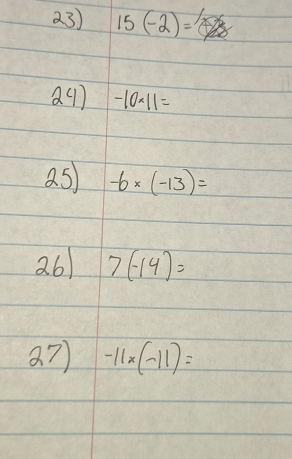 23) 15 (-2) =
24) -10 × 11 =
25) -6 × (-13) =
26) 7 (-14) =
27) -11 × (-11) =